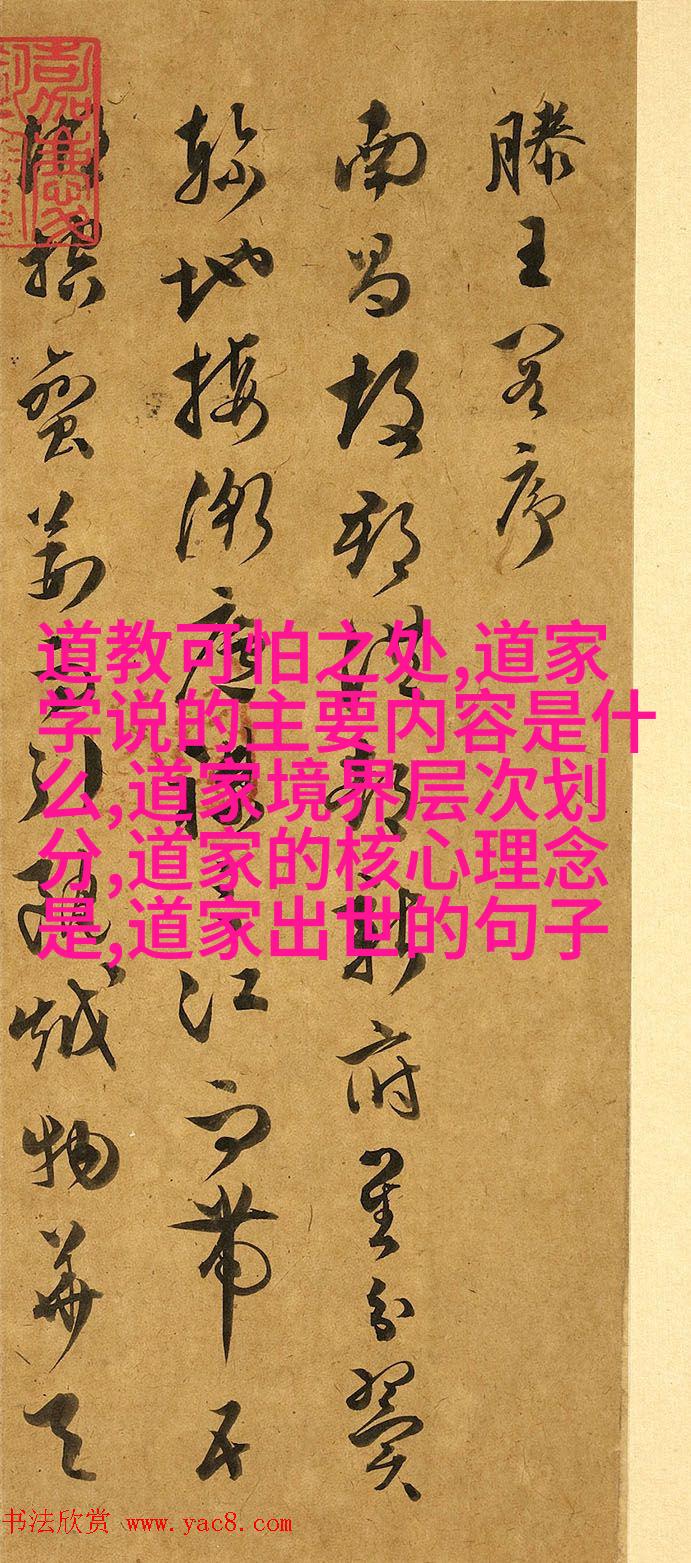 滕王閣序
南昌故郡洪都新府星分翼
軫地接衡廬襟三江而帶五
湖控蠻荊而引甌越物華天
道教可怕之处,道家
学说的主要内容是什
么,道家境界层次划
分,道家的核心理念
是,道家出世的句子
书法欣赏 www.yac8.com